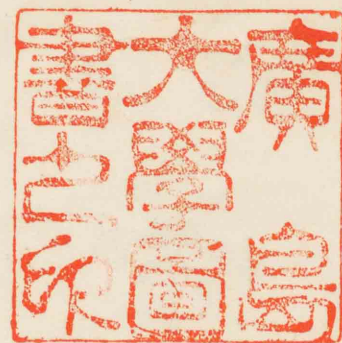 廣島
大學圖
書之印